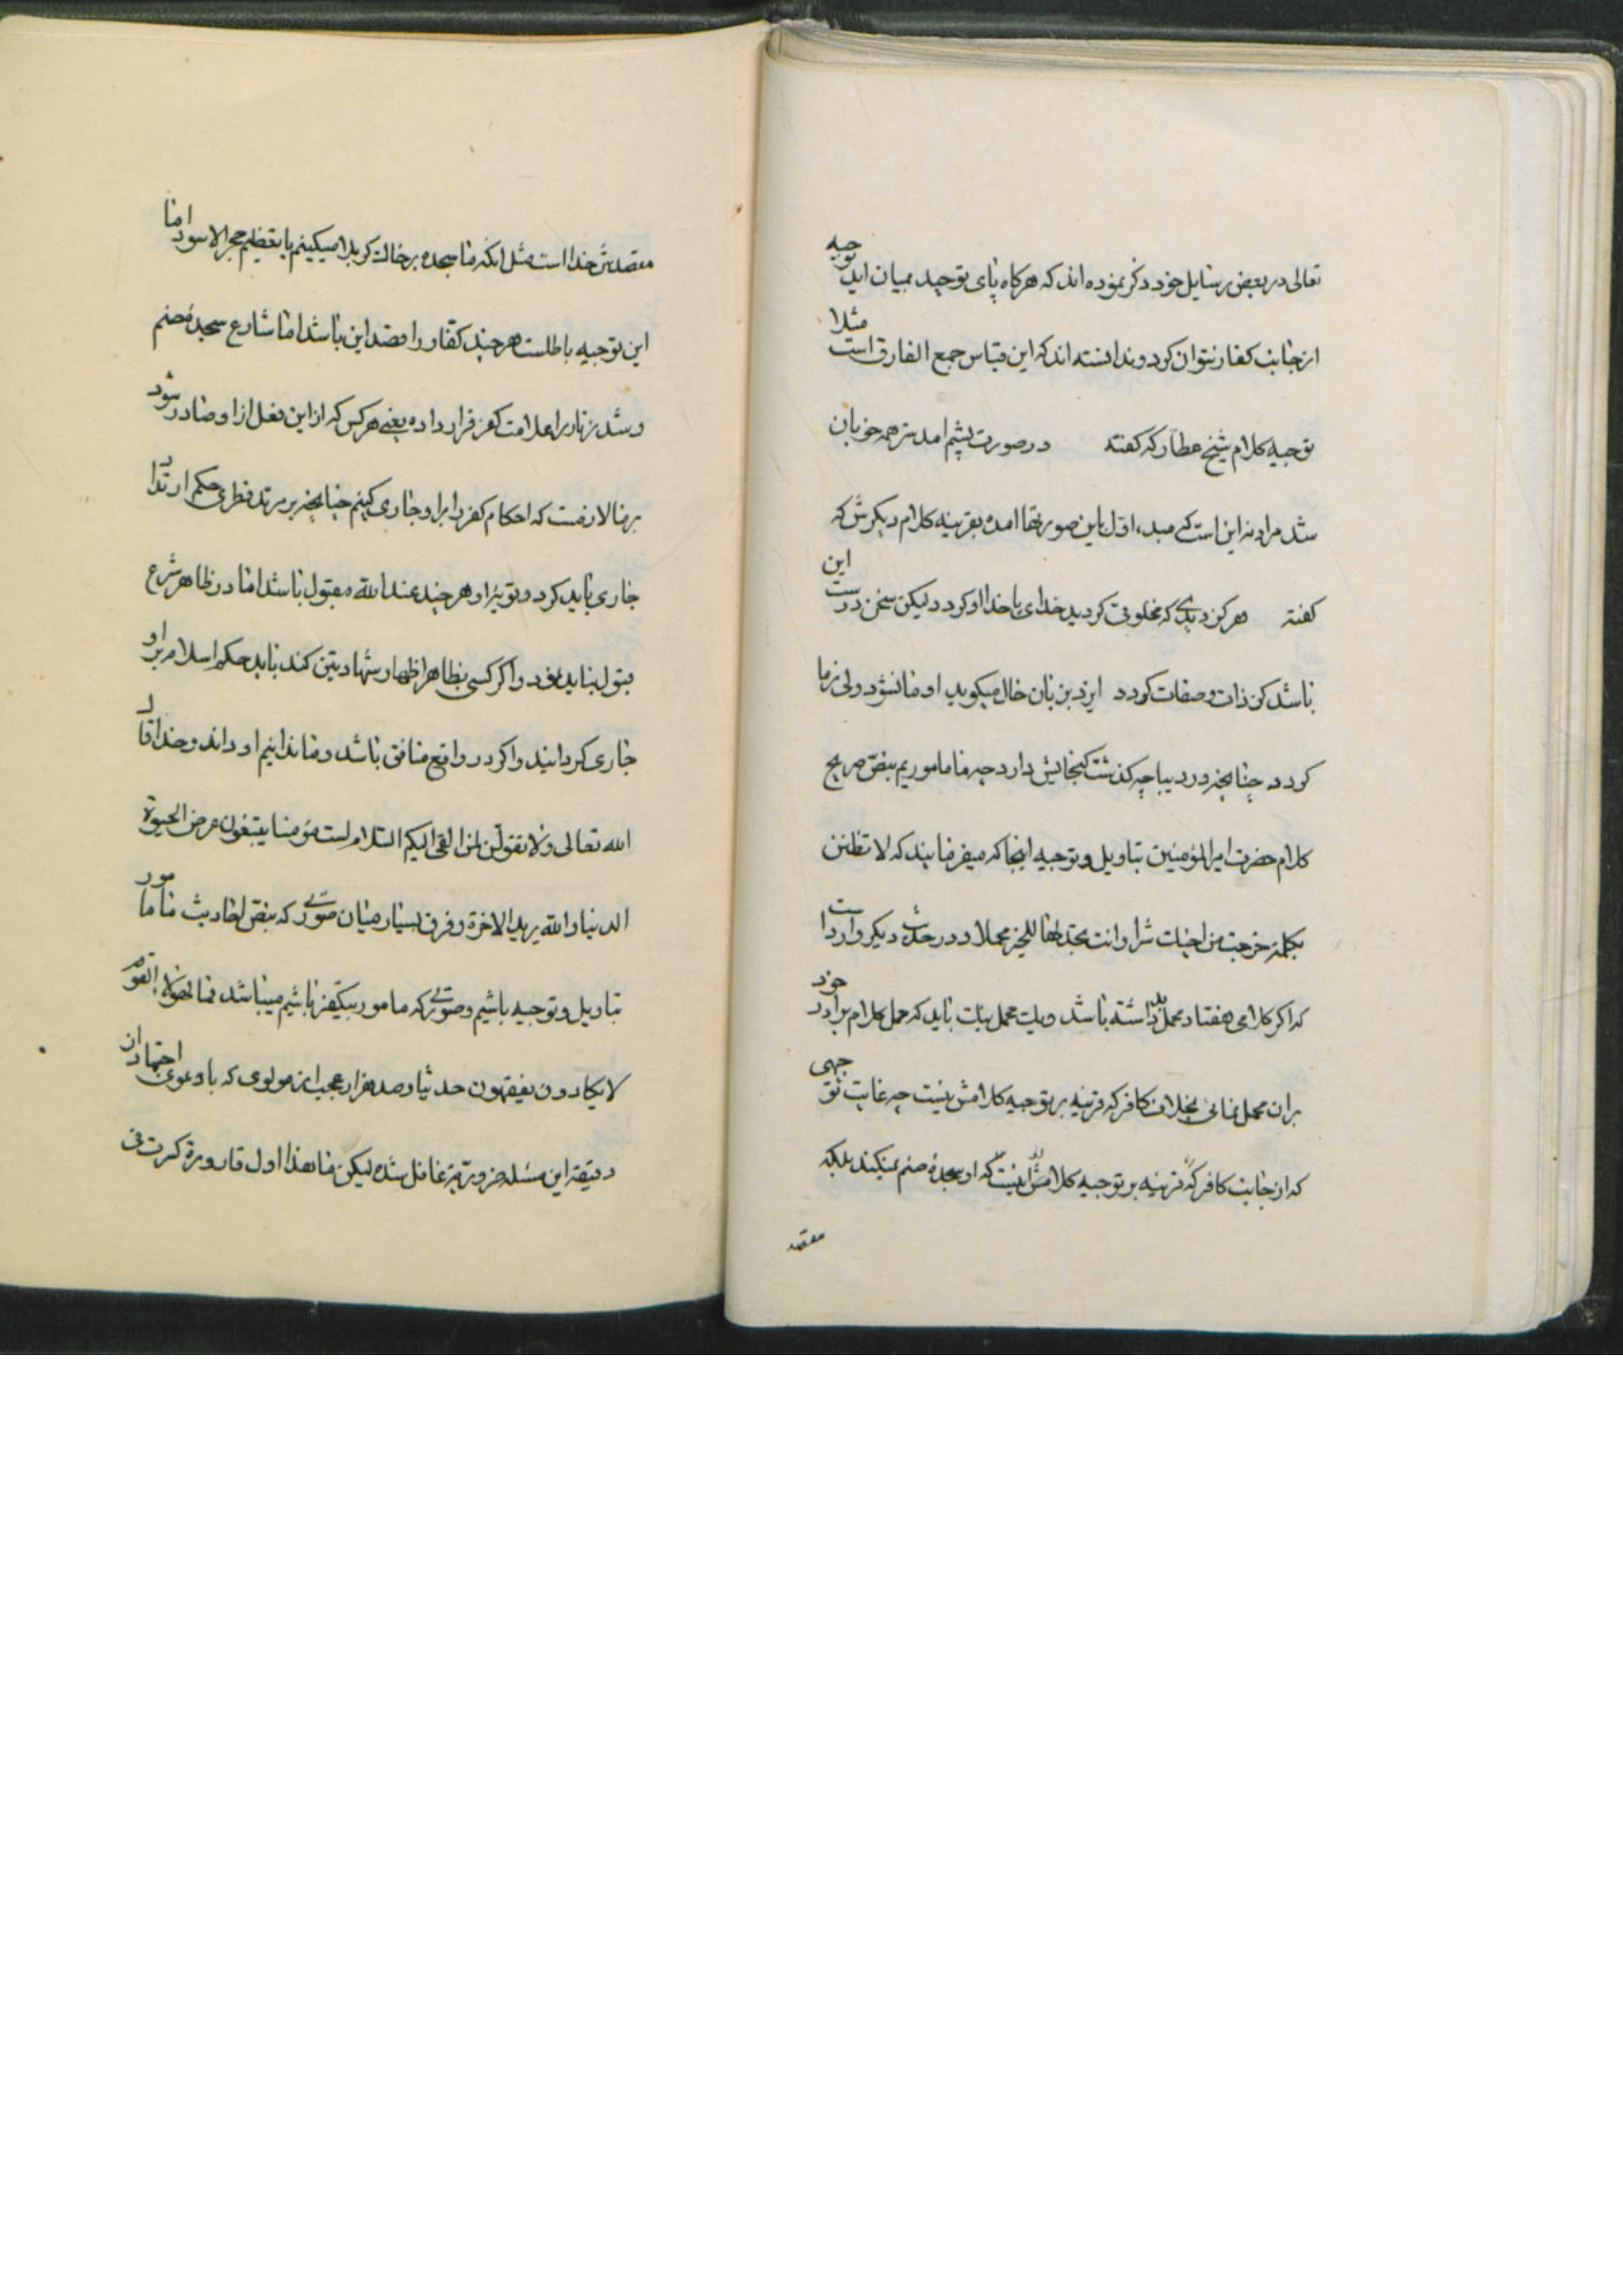 تعالی در بعض رسایل خود ذکر نموده اند که هرکاه پای توحید بمیان اید توجیه
از جانب کفار نتوان کرد و ندانسته اند که این قیاس جمع الفارق است مثلا
توجیه کلام شیخ عطار که کفته در صورت پشم امد نز همه خوبان
شد مراد نه این است که مبدء اول باین صورتها امده بقرینه کلام دیکرش که
کفته هرکز دیدی که مخلوقی کردید خدای یا خدا او کردد لیکن سخن درست این
باشد کن ذات و صفات کردد ایزد بزبان حال میکوید او ما نشود ولی زما
کردد چنانچه در دیباچه کذشت کنجایش دارد چه ما ماموریم بنص صریح
کلام حضرت امیرالمؤمنین بتاویل و توجیه اینجا که میفرمایند که لا تظنن
بکلمة خرجت من اخیک شرا و انت تجد لها للخیر محملا و در حدیث دیکر وارد است
که اکر کلامی هفتاد محمل بد داشته باشد و یک محمل نیک باید که حمل کلام برادر خود
بران محمل نمائی بخلاف کافر که قرینه بر توجیه کلامش نیست چه غایت توجهی
که از جانب کافر که قرینه بر توجیه کلامش اینست که او سجدهٔ صنم نمیکند بلکه
مقصد
مقصدش خدا است مثل انکه ما سجده بر خاک کربلا میکینم یا تعظیم حجر الاسود اما
این توجیه باطلست هر چند کفار را قصد این باشد اما شارع سجدهٔ صنم
و شد زنار را علامت کفر قرار داده یعنی هر کس که از این فعل از او صادر شود
بر ما لازمست که احکام کفر را بر او جاری کینم چنانچه بر مرتد فطری حکم ارتداد
جاری باید کرد و توبهٔ او هر چند عند الله مقبول باشد اما در ظاهر شرع
قبول نباید نمود و اکر کسی بظاهر اظهار شهادتین کند باید حکم اسلام بر او
جاری کردانید و اکر در واقع منافق باشد و ما ندانیم او داند و خدا قال
الله تعالی ولا تقولن لمن القی الیکم السلام لست مؤمنا یبتغون عرض الحیوة
الدنیا والله یرید الاخرة و فرق بسیار میان صورتی که بنص احادیث ما مامور
بتاویل و توجیه باشیم و صورتی که مامور بتکفیر باشیم میباشد فما لهؤلاء القوم
لا یکادون یفقهون حدیثا و صد هزار عجب از مولوی که با دعوی اجتهاد از ان
دقیقهٔ این مسئله ضروریه غافل شده لیکن ما هذا اول قارورة کسرت فی